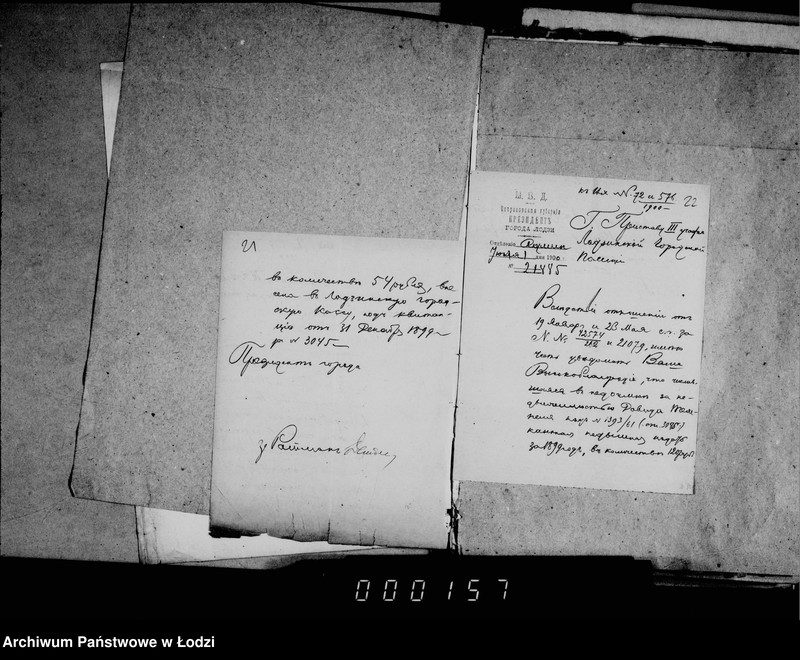 21
въ количествѣ 54 рубля, вне-
сена въ Лодзинскую город-
скую Кассу, подъ квитан-
цію отъ 31 Декабря 1899 г.
за № 3045
Президентъ города
М. В. Д.
Петроковская губернія
ПРЕЗИДЕНТЪ
ГОРОДА ЛОДЗИ
Отдѣленіе
Іюня 1 дня 1900
№ 21485
къ вх. № 72 и 576
1900
22
Г. Приставу III участка
Лодзинской Городской
Полиціи
Вслѣдствіе отношеній отъ
19 Января и 23 Мая с.г. за
№ № 42574
и 21079, имѣю
честь увѣдомить Ваше
Высокоблагородіе, что числив-
шаяся въ недоимкѣ за не-
движимостью Давида
подъ № 1393/61 (от. 3045)
подать
за 1899 годъ, въ количествѣ
000157
Archiwum Państwowe w Łodzi